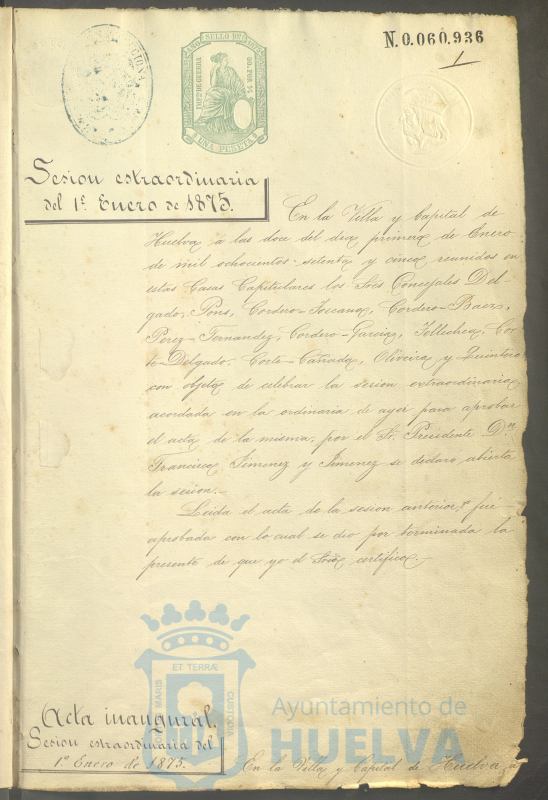 N.0.060.936
1
AÑO SELLO DE 1875
IMP.TO DE GUERRA
UNA PESETA
Sesion estraordinaria
del 1º Enero de 1875.
En la Villa y Capital de
Huelva á las doce del dia primero de Enero
de mil ochocientos setenta y cinco reunidos en
estas Casas Capitulares los Srès Concejales Del-
gado, Pons, Cordero-Toscano, Cordero-Baez,
Perez-Fernandez, Cordero-Garcia, Tellechea, Cor-
te-Delgado, Corte-Cañada, Oliveira y Quintero
con objeto de celebrar la sesion extraordinaria
acordada en la ordinaria de ayer para aprobar
el acta de la misma, por el Sr. Presidente Dn
Francisco Jimenez y Jimenez se declaró abierta
la sesion.-
Leida el acta de la sesion anterior, fué
aprobada con lo cual se dio por terminada la
presente de que yo el Srio certifico.-
ET TERRÆ
MARIS
CUSTODIA
Ayuntamiento de
HUELVA
Acta inaugural.
Sesion estraordinaria del
1º Enero de 1875.
En la Villa y Capital de Huelva á